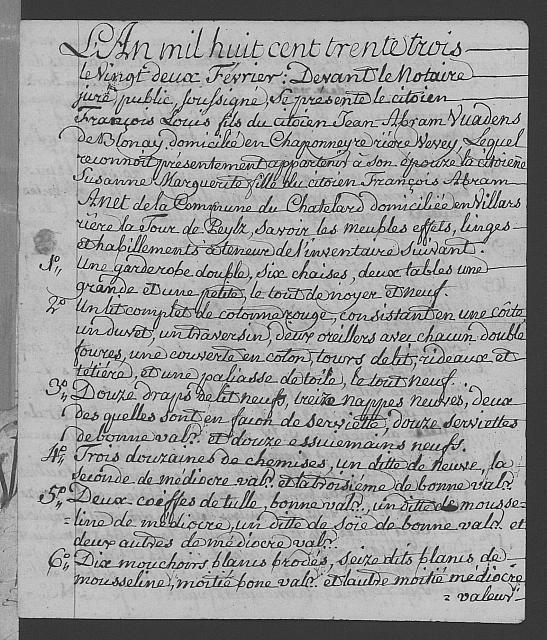 L'An mil huit cent trente trois
le Vingt deux Février: Devant le Notaire
juré public soussigné, Se présente le citoïen
François Louis fils du citoïen Jean Abram Vuadens
de Blonay, domicilié en Chaponneyre riére Vevey, Lequel
reconnoit présentement appartenir à son épouze la citoïene
Susanne Marguerite fille du citoïen François Abram
Amet de la Commune du Chatelard domiciliée en Villars
riére la Tour de Peylz, savoir les meubles effets, linges
et habillements à teneur de l'inventaire Suivant.
1º,, Une garderobe double, six chaises, deux tables une
grande et une petite, le tout de noyer et neuf.
2º,, Un lit complet de cotonne rouge, consistant en une
un duvet, un traversin, deux oreillers avec chacun double
foures, une couverte en coton, tours de lit, rideaux et
tétiére, et une paliasse de toile, le tout neuf.
3º,, Douze draps de lit neufs, treize nappes neuves, deux
des quelles sont en facon de serviette, douze serviettes
de bonne valr. et douze essuiemains neufs.
4º,, Trois douzaines de chemises, un ditte de neuve, la
seconde de médiocre valr. et la troisiéme de bonne valr.
5º,, Deux coëffes de tulle, bonne valr., un ditte de mousse-
=line de médiocre, un ditte de soïe de bonne valr. et
deux autres de médiocre valr.
6º,, Dix mouchoirs blancs brodés, seize dits blancs de
mousseline, moitié bone valr. et l'autre moitié médiocre
= valeur.